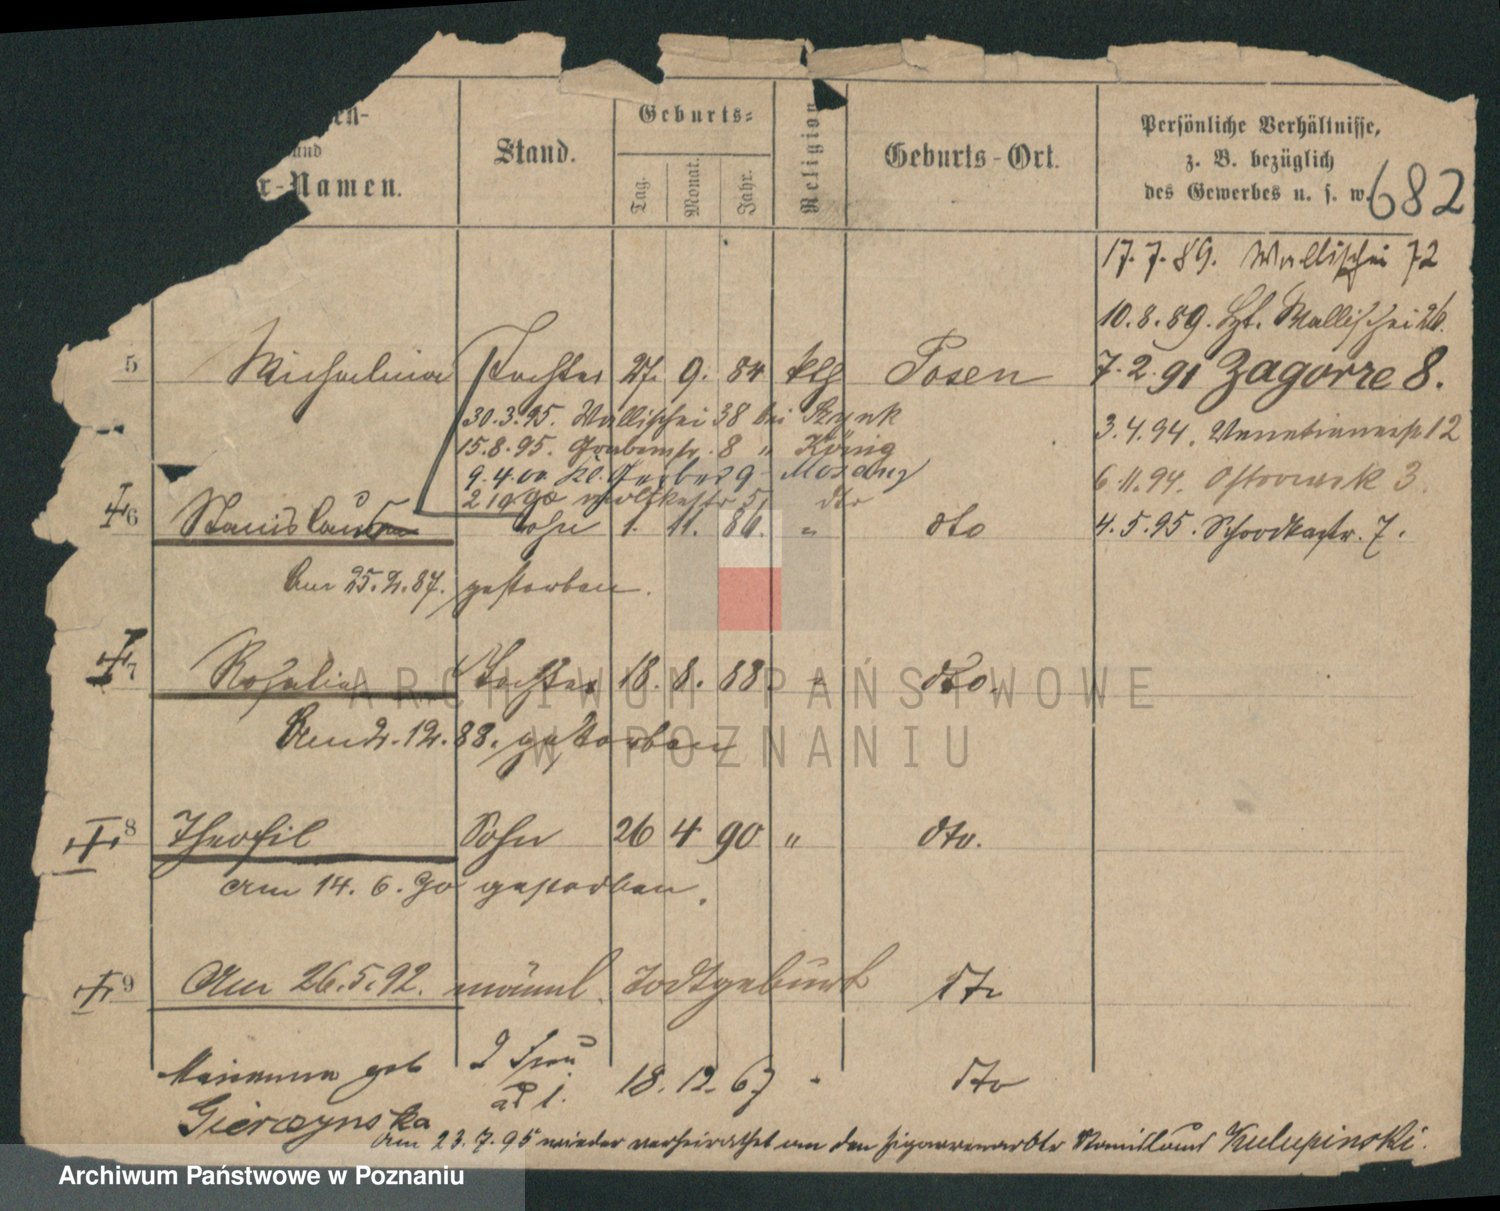 en-
und
r-Namen.
Stand.
Geburts-
Tag.
Monat.
Jahr.
Religion
Geburts-Ort.
Persönliche Verhältnisse,
z. B. bezüglich
des Gewerbes u. s. w.
682
17.7.89. Wallischei 72
10.8.89. Wallischei 26.
5 Michalina Tochter 27. 9. 84 klg Posen
7.2.91 Zagorze 8.
30.3.95. Wallischei 38 bei
3.4.94. Venetianerstr 12
15.8.95. Grabenstr. 8 " König
9.4.00 Kl. Gerber 9
6.11.94. Ostrowek 3.
2 10 90 Moltkestr 5 dto
6 Stanislaus Sohn 1. 11. 86. " dto
4.5.95. Schrodkastr. 7.
Am 25.2.87. gestorben.
7 Rosalia Tochter 18. 8. 88. " dto.
Am 2.12.88. gestorben
8 Theofil Sohn 26 4 90 " dto.
Am 14. 6. 90 gestorben.
9 Am 26.5.92. männl. Todtgeburt dto
Marianna geb 2 Frau 18. 12. 67 " dto
ad 1.
Gierczynska
Am 23.7.95 wieder verheirathet an den Zigarrenarbtr Stanislaus Kulupinski.
ARCHIWUM PAŃSTWOWE
W POZNANIU
Archiwum Państwowe w Poznaniu